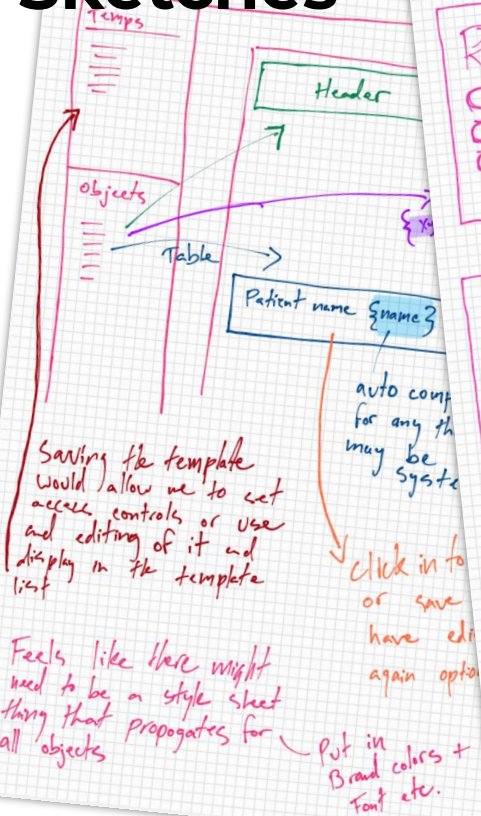 Sketches
Temps
Header
Objects
Table
Patient name {name}
auto comp
for any th
may be
syste
Saving the template
would allow me to set
access controls or use
and editing of it and
display in the template
list
click in to
or save
have edi
again optio
Feels like there might
need to be a style sheet
thing that propogates for
all objects
Put in
Brand colors +
Font etc.